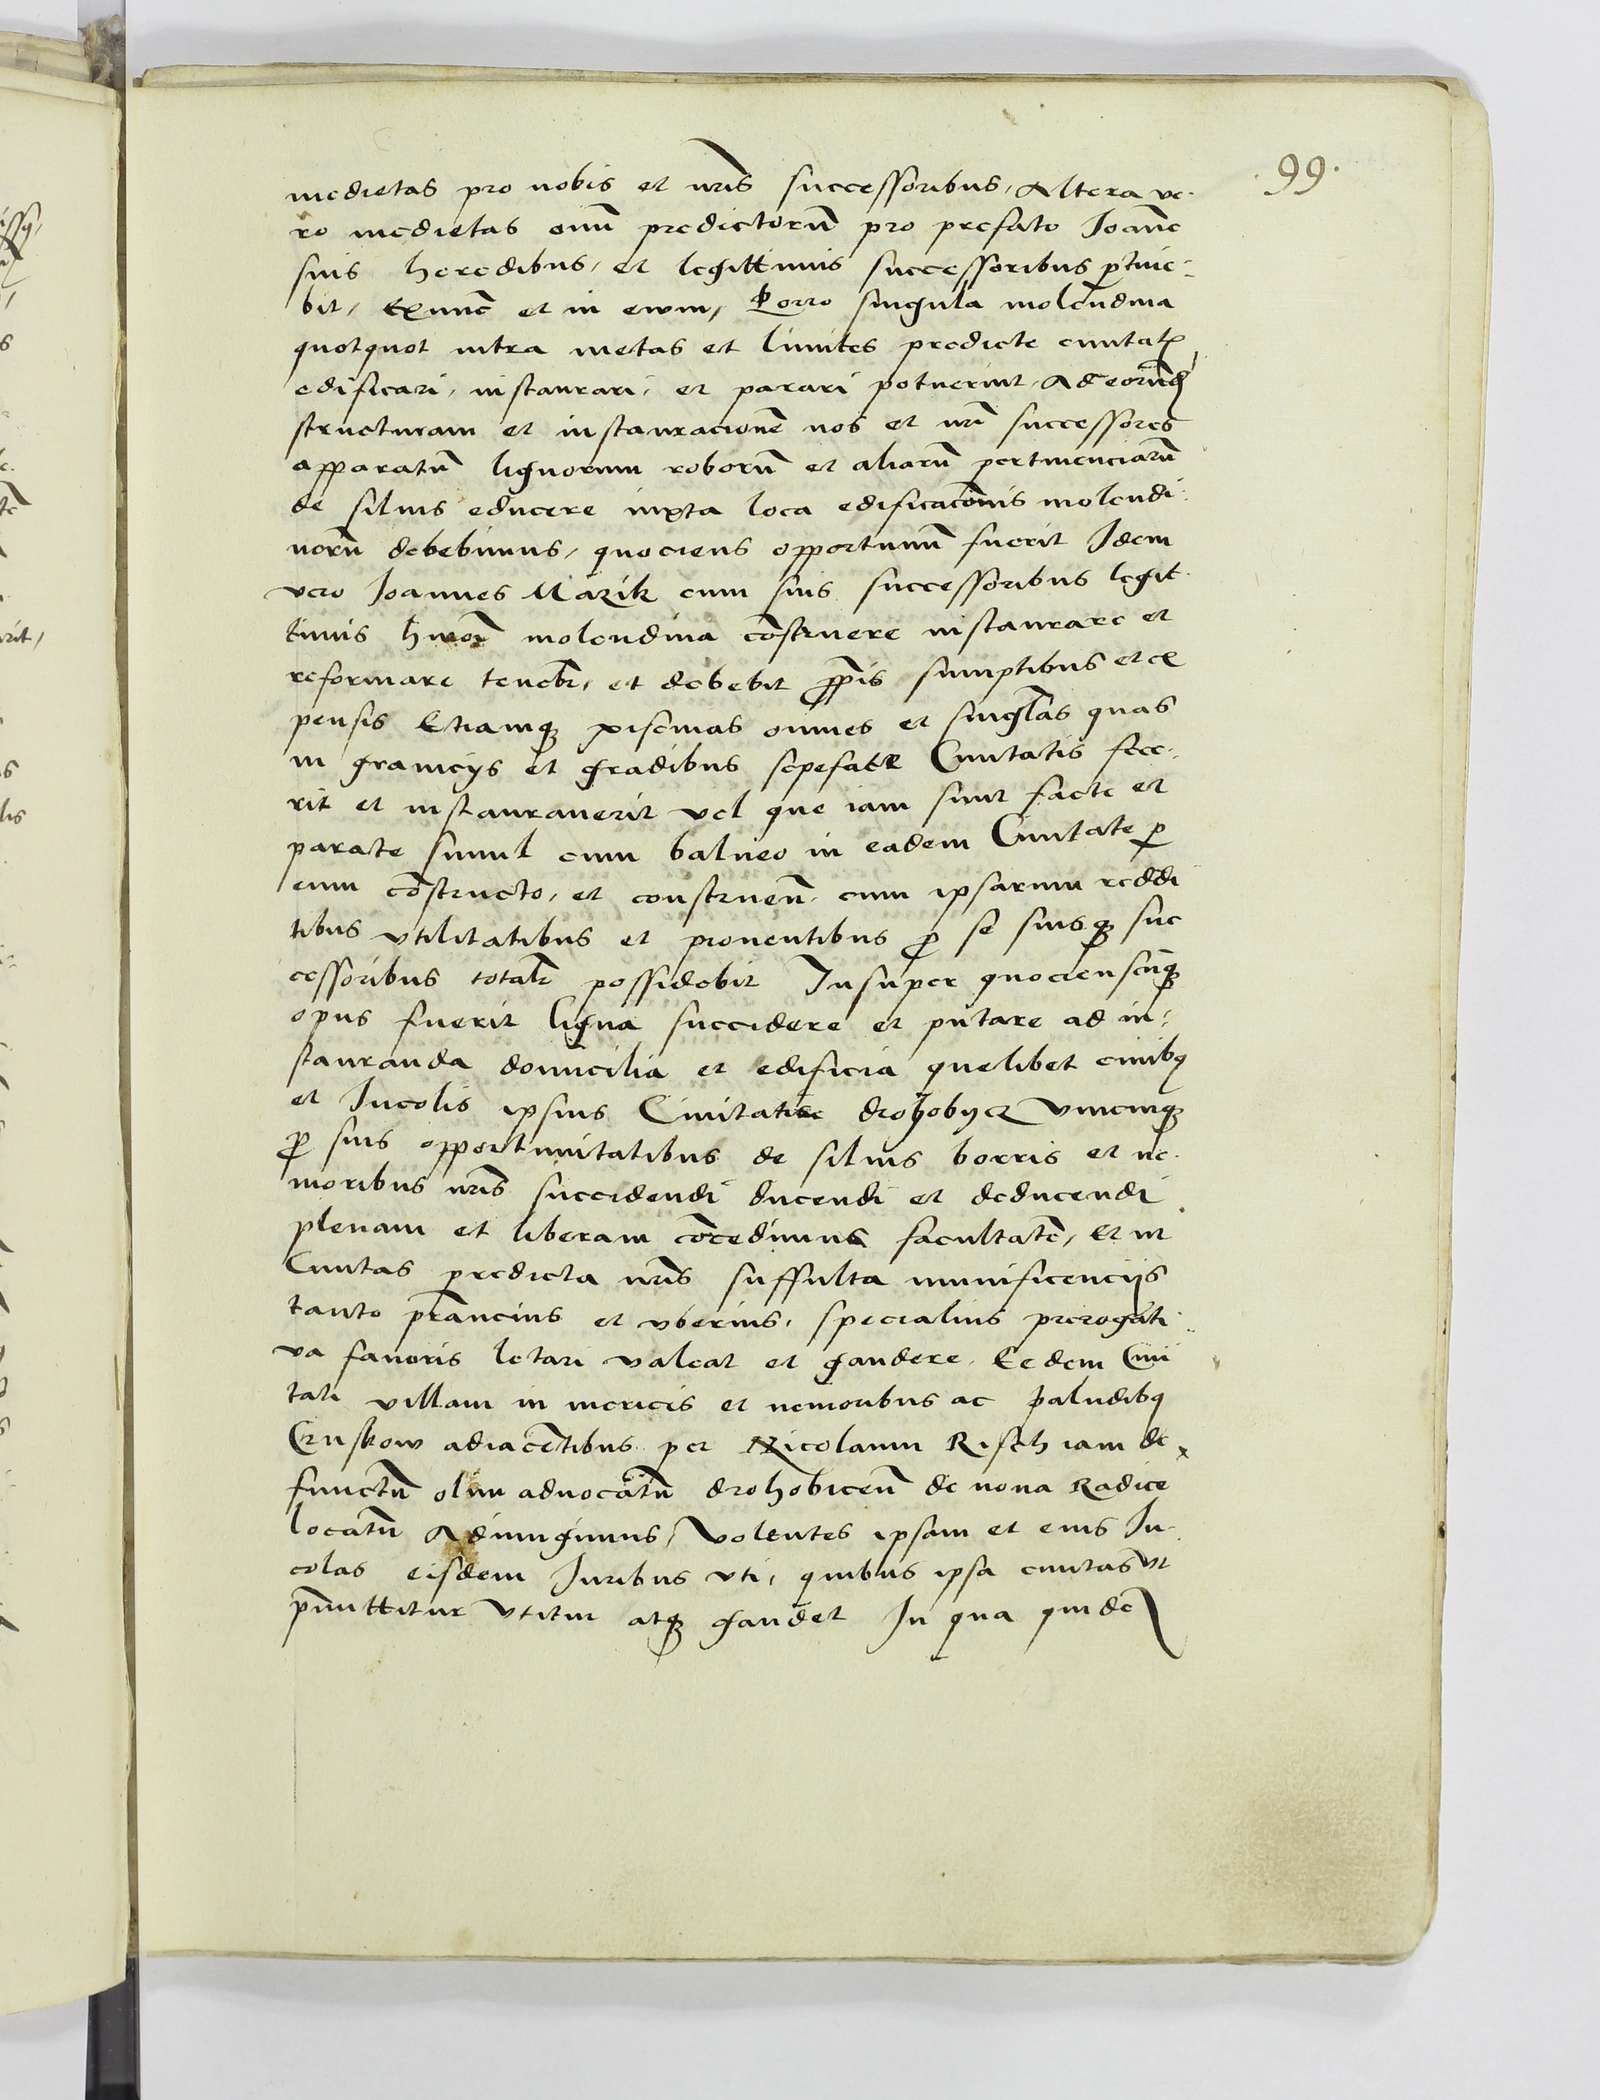 99.
medietas pro nobis et nr̄is successoribus, Altera ve-
ro medietas oīm̄ predictorū pro prefato Joan̄e
suis heredibus, et legittimis successoribus ꝑtine-
bit, Exnūc et in ewm, Porro singula molendina
quotquot intra metas et limites predicte ciuitatꝭ
edificari, instaurari, et parari potuerint, Ad eorūdē
structuram et instauracionē nos et nr̄i successores
apparatū lignorum roborū et aliarū pertinenciarū
de siluis educere iuxta loca edificacōnis molendi-
norū debebimus, quociens opportunū fuerit Idem
vero Joannes Mazik cum suis successoribus legit-
timis hmōi molendina cōstruere instaurare et
reformare tenebīt, et debebit ꝓprīis sumptibus et ex
pensis Etiamqꝫ piscinas omnes et singl̄as quas
in granicÿs et gradibus sepefate Ciuitatis fece-
rit et instaurauerit vel que iam sunt facte et
parate simul cum balneo in eadem Ciuitate ꝑ
eum cōstructo, et construen̄. cum ipsarum reddi
tibus vtilitatibus et prouentibus ꝓ se suisqꝫ suc
cessoribus totalr̄ possidebit Insuper quocienscūqꝫ
opus fuerit ligna succidere et putare ad in-
stauranda domicilia et edificia quelibet ciuibꝫ
et Incolis ipsius Ciuitatis drohobycz vnicuiqꝫ
ꝓ suis opportunitatibus de siluis borris et ne-
moribus nr̄is succidendi ducendi et deducendi
plenam et liberam cōcedimus facultatē, Et ut
Ciuitas predicta nr̄is suffulta munificencijs
tanto prestancius et vberius, specialius prerogati-
va fauoris letari valeat et gaudere, Eedem Ciui
tati villam in mericis et nemoribus ac paludibꝫ
Cruskow adiacētibus per Nicolaum Risch iam de-
functū olim aduocatū drohobicen̄ de noua Radice
locatū Adiungimus, Volentes ipsam et eius In-
colas eisdem Juribus vti, quibus ipsa ciuitas vt
p̄mittitur vtitur atqꝫ gaudet In qua quidē